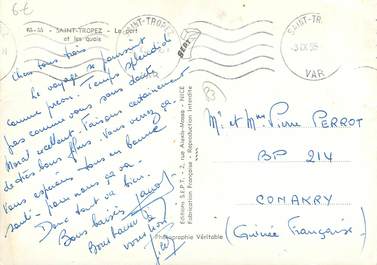 6€
83-55 - SAINT-TROPEZ - Le port
et les quais
Chers tous trois
Le voyage se poursuit
comme prévu. Temps splendide
pas comme vous sans doute.
Moral excellent. Faisons certainement
de très bons films. Vous verrez ça.
Vous espérons tous en bonne
santé. pour nous ça va.
Donc tout va bien.
Bons baisers
vous trois
Editions S.E.P.T. - 2, rue Alexis-Mossa - NICE
Fabrication Française - Reproduction Interdite
Photographie Véritable
SAINT-TR
VAR
83
Mr et Mme Pierre PERROT
BP 214
CONAKRY
(Guinée Française)